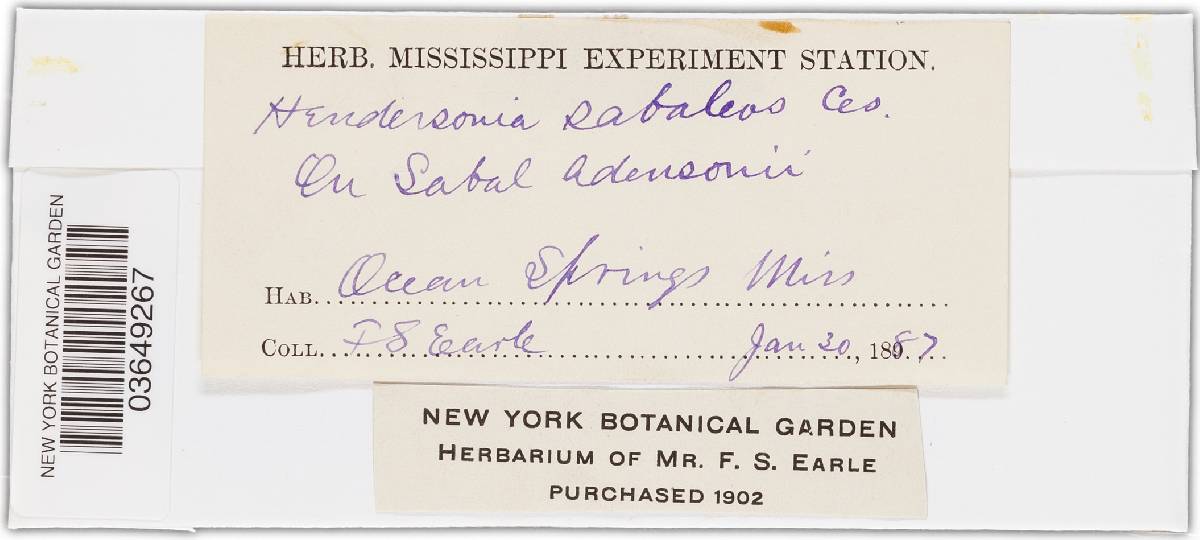 HERB. MISSISSIPPI EXPERIMENT STATION.
Hendersonia sabaleos Ces.
On Sabal Adensonii
HAB. Ocean Springs Miss
COLL. F S Earle Jan 20, 1887
NEW YORK BOTANICAL GARDEN
HERBARIUM OF MR. F. S. EARLE
PURCHASED 1902
NEW YORK BOTANICAL GARDEN
03649267